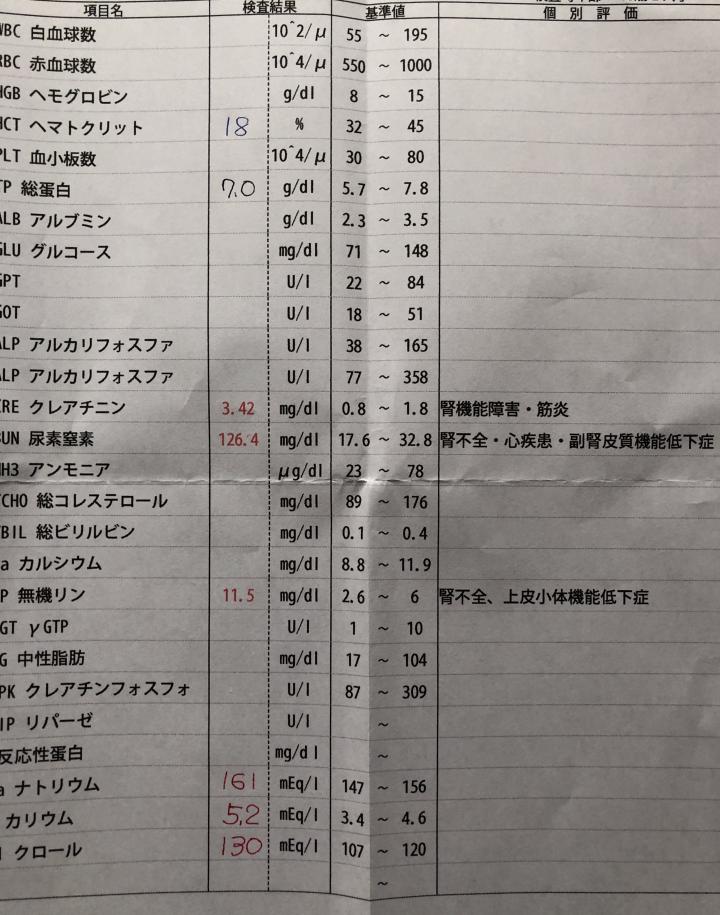 項目名 検査結果 基準値 個別評価
WBC 白血球数 10^2/μ 55 ～ 195
RBC 赤血球数 10^4/μ 550 ～ 1000
HGB ヘモグロビン g/dl 8 ～ 15
HCT ヘマトクリット 18 % 32 ～ 45
PLT 血小板数 10^4/μ 30 ～ 80
TP 総蛋白 7.0 g/dl 5.7 ～ 7.8
ALB アルブミン g/dl 2.3 ～ 3.5
GLU グルコース mg/dl 71 ～ 148
GPT U/l 22 ～ 84
GOT U/l 18 ～ 51
ALP アルカリフォスファ U/l 38 ～ 165
ALP アルカリフォスファ U/l 77 ～ 358
CRE クレアチニン 3.42 mg/dl 0.8 ～ 1.8 腎機能障害・筋炎
BUN 尿素窒素 126.4 mg/dl 17.6 ～ 32.8 腎不全・心疾患・副腎皮質機能低下症
NH3 アンモニア μg/dl 23 ～ 78
TCHO 総コレステロール mg/dl 89 ～ 176
TBIL 総ビリルビン mg/dl 0.1 ～ 0.4
a カルシウム mg/dl 8.8 ～ 11.9
P 無機リン 11.5 mg/dl 2.6 ～ 6 腎不全、上皮小体機能低下症
GT γGTP U/l 1 ～ 10
G 中性脂肪 mg/dl 17 ～ 104
PK クレアチンフォスフォ U/l 87 ～ 309
IP リパーゼ U/l ～
反応性蛋白 mg/dl ～
a ナトリウム 161 mEq/l 147 ～ 156
カリウム 5.2 mEq/l 3.4 ～ 4.6
l クロール 130 mEq/l 107 ～ 120
～